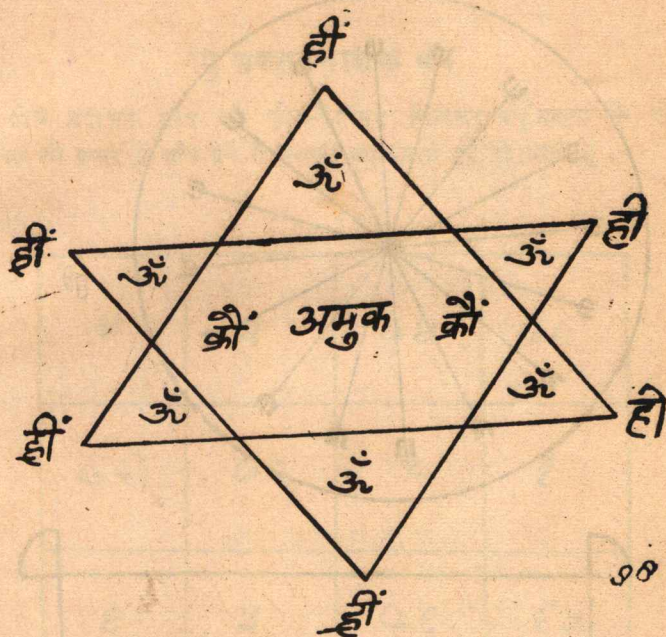 ह्रीं
ॐ
ह्रीं ॐ ॐ ह्री
क्रौं अमुक क्रौं
ॐ ॐ
ह्रीं ह्री
ॐ
ह्रीं